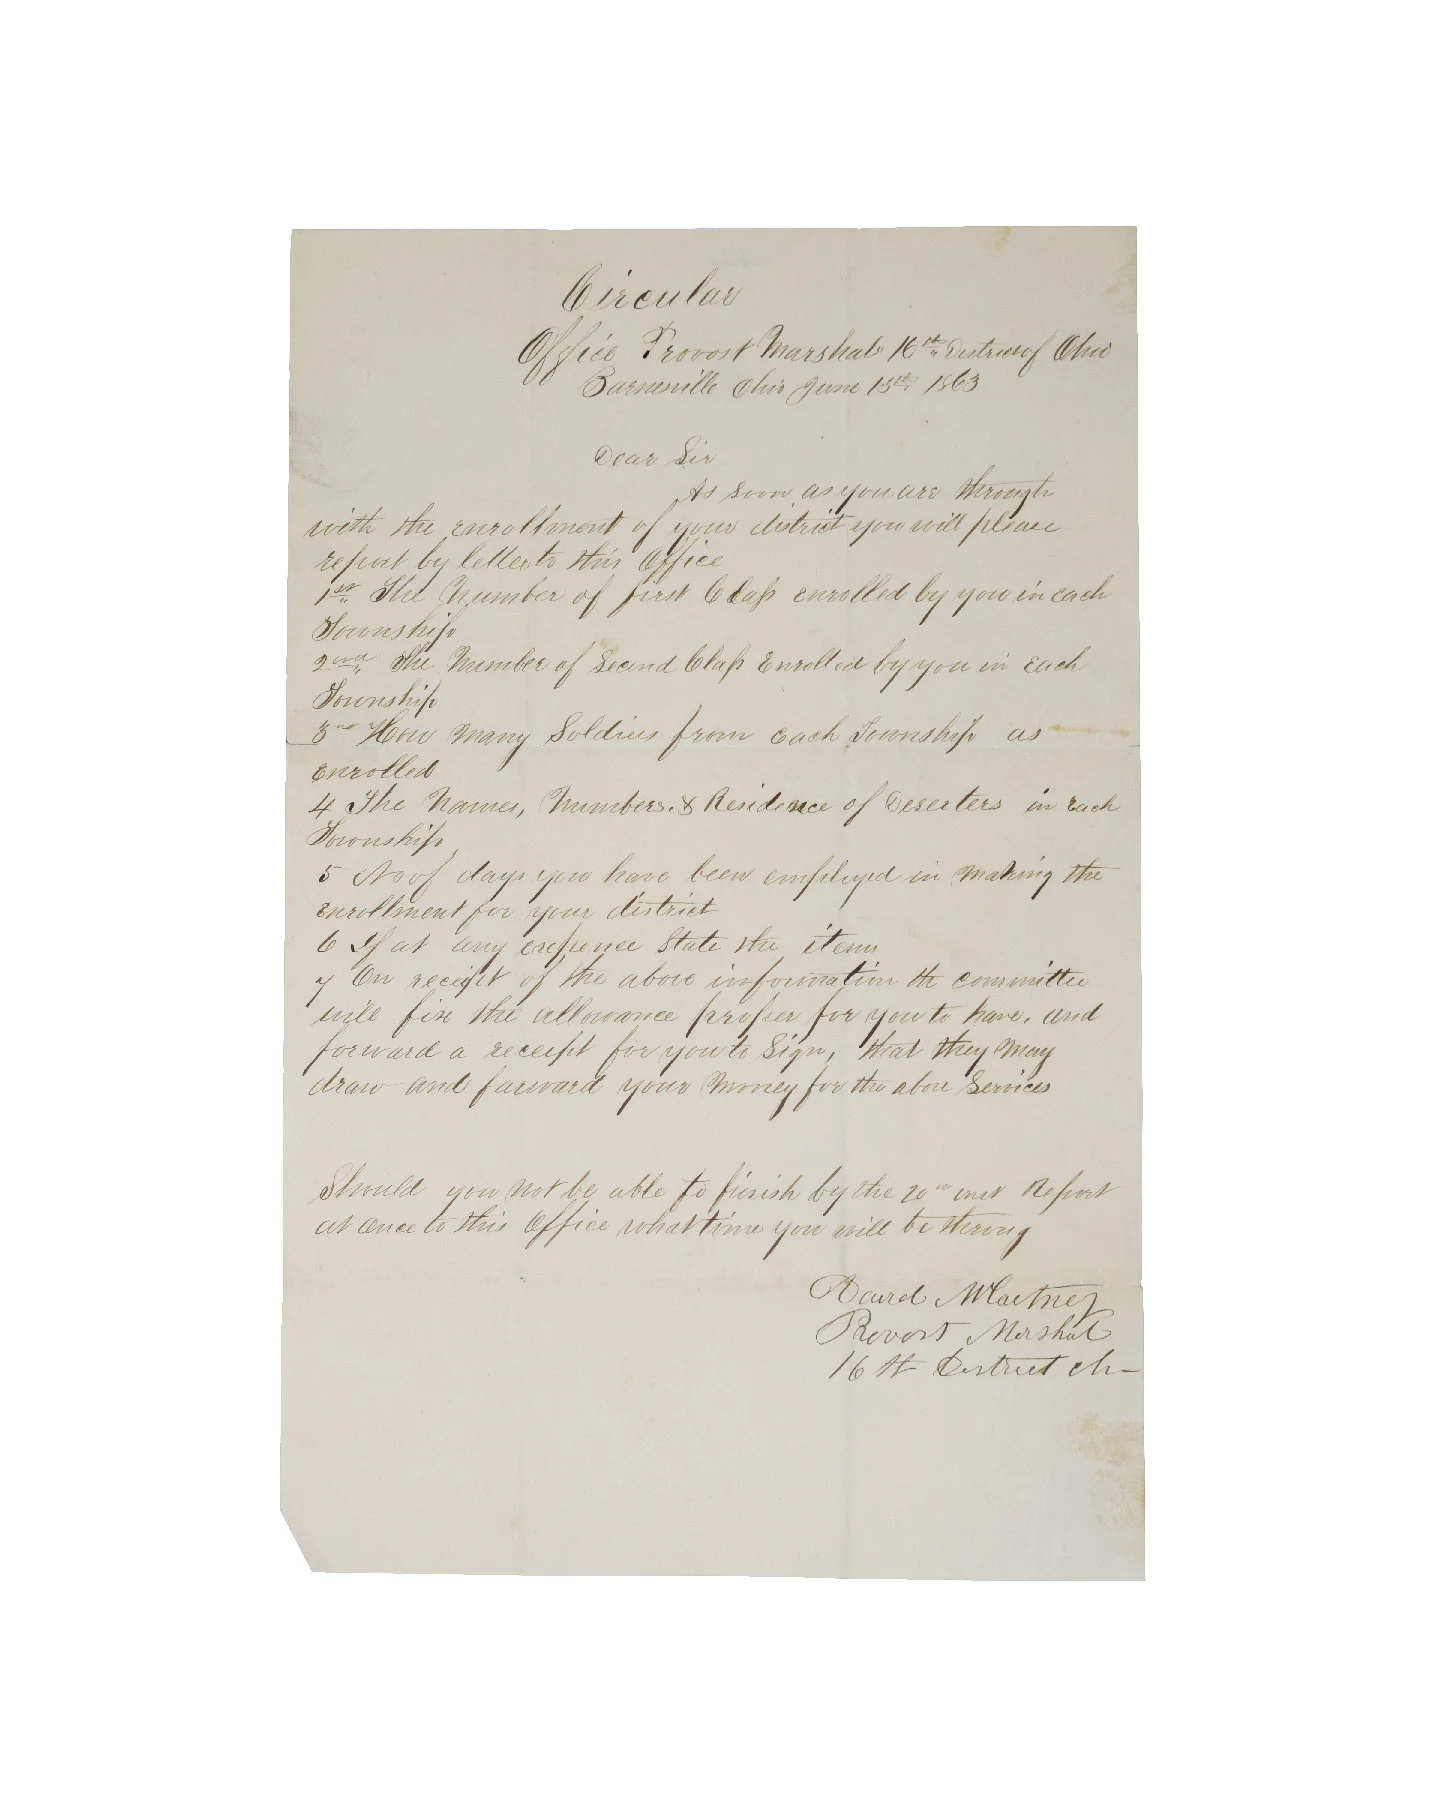 Circular
Office Provost Marshal 16th District of Ohio
Barnesville Ohio June 15th 1863
Dear Sir
As soon as you are through
with the enrollment of your district you will please
report by letter to this Office
1st The Number of first Class enrolled by you in each
Township
2nd The Number of Second Class Enrolled by you in each
Township
3rd How Many Soldiers from each Township as
enrolled
4 The Names, Numbers. & Residence of Deserters in each
Township
5 No of days you have been employed in making the
enrollment for your district
6 If at any expence State the items
7 On receipt of the above information the committee
will fix the allowance proper for you to have, and
forward a receipt for you to Sign, that they May
draw and forward your Money for the above Services
Should you not be able to finish by the 20th inst Report
at Once to this Office what time you will be throug
David McCartney
Provost Marshal
16th District Oh